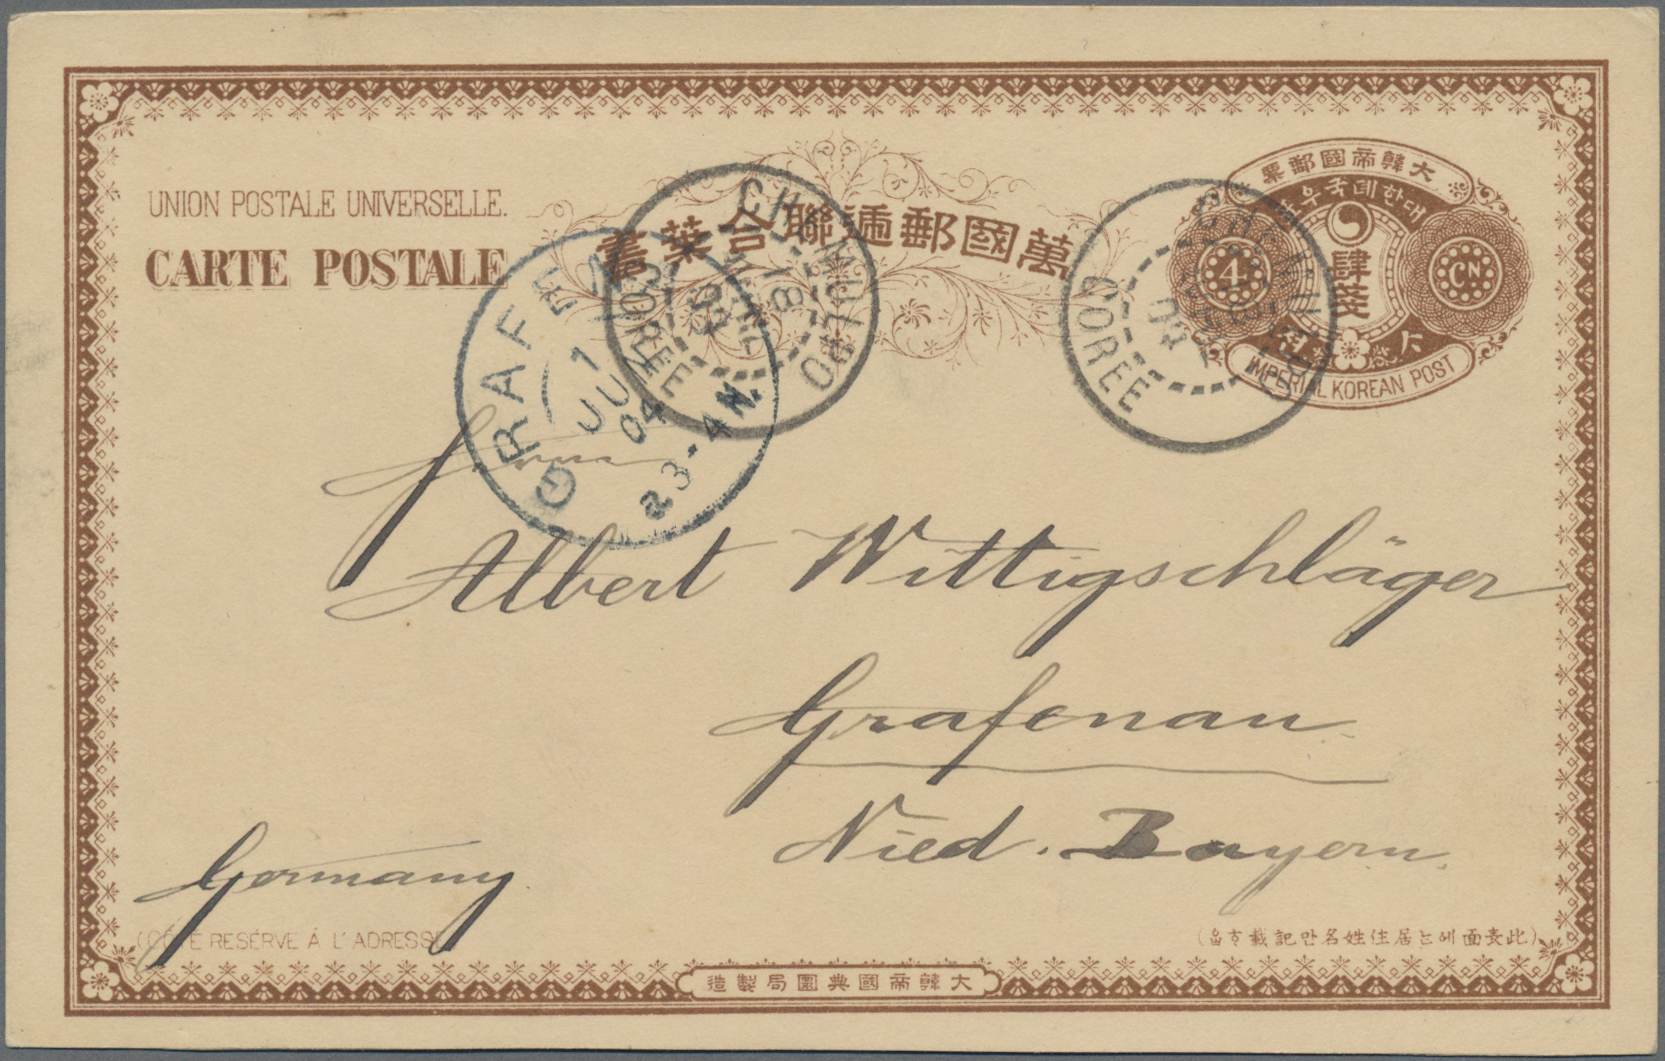 UNION POSTALE UNIVERSELLE.
CARTE POSTALE
萬國郵遞聯合葉書
大韓帝國郵票
대한뎨국우표
4
肆錢
CN
IMPERIAL KOREAN POST
CHEMULPO
18
AVRIL
04
COREE
CHEMULPO
18
AVRIL
04
COREE
GRAFENAU
1
JUN
04
3-4 N.
Albert Wittigschläger
Grafenau
Nied. Bayern
Germany
(CÔTÉ RÉSERVÉ À L'ADRESSE)
(此表面에는居住姓名만記載하


大韓帝國典圜局製造